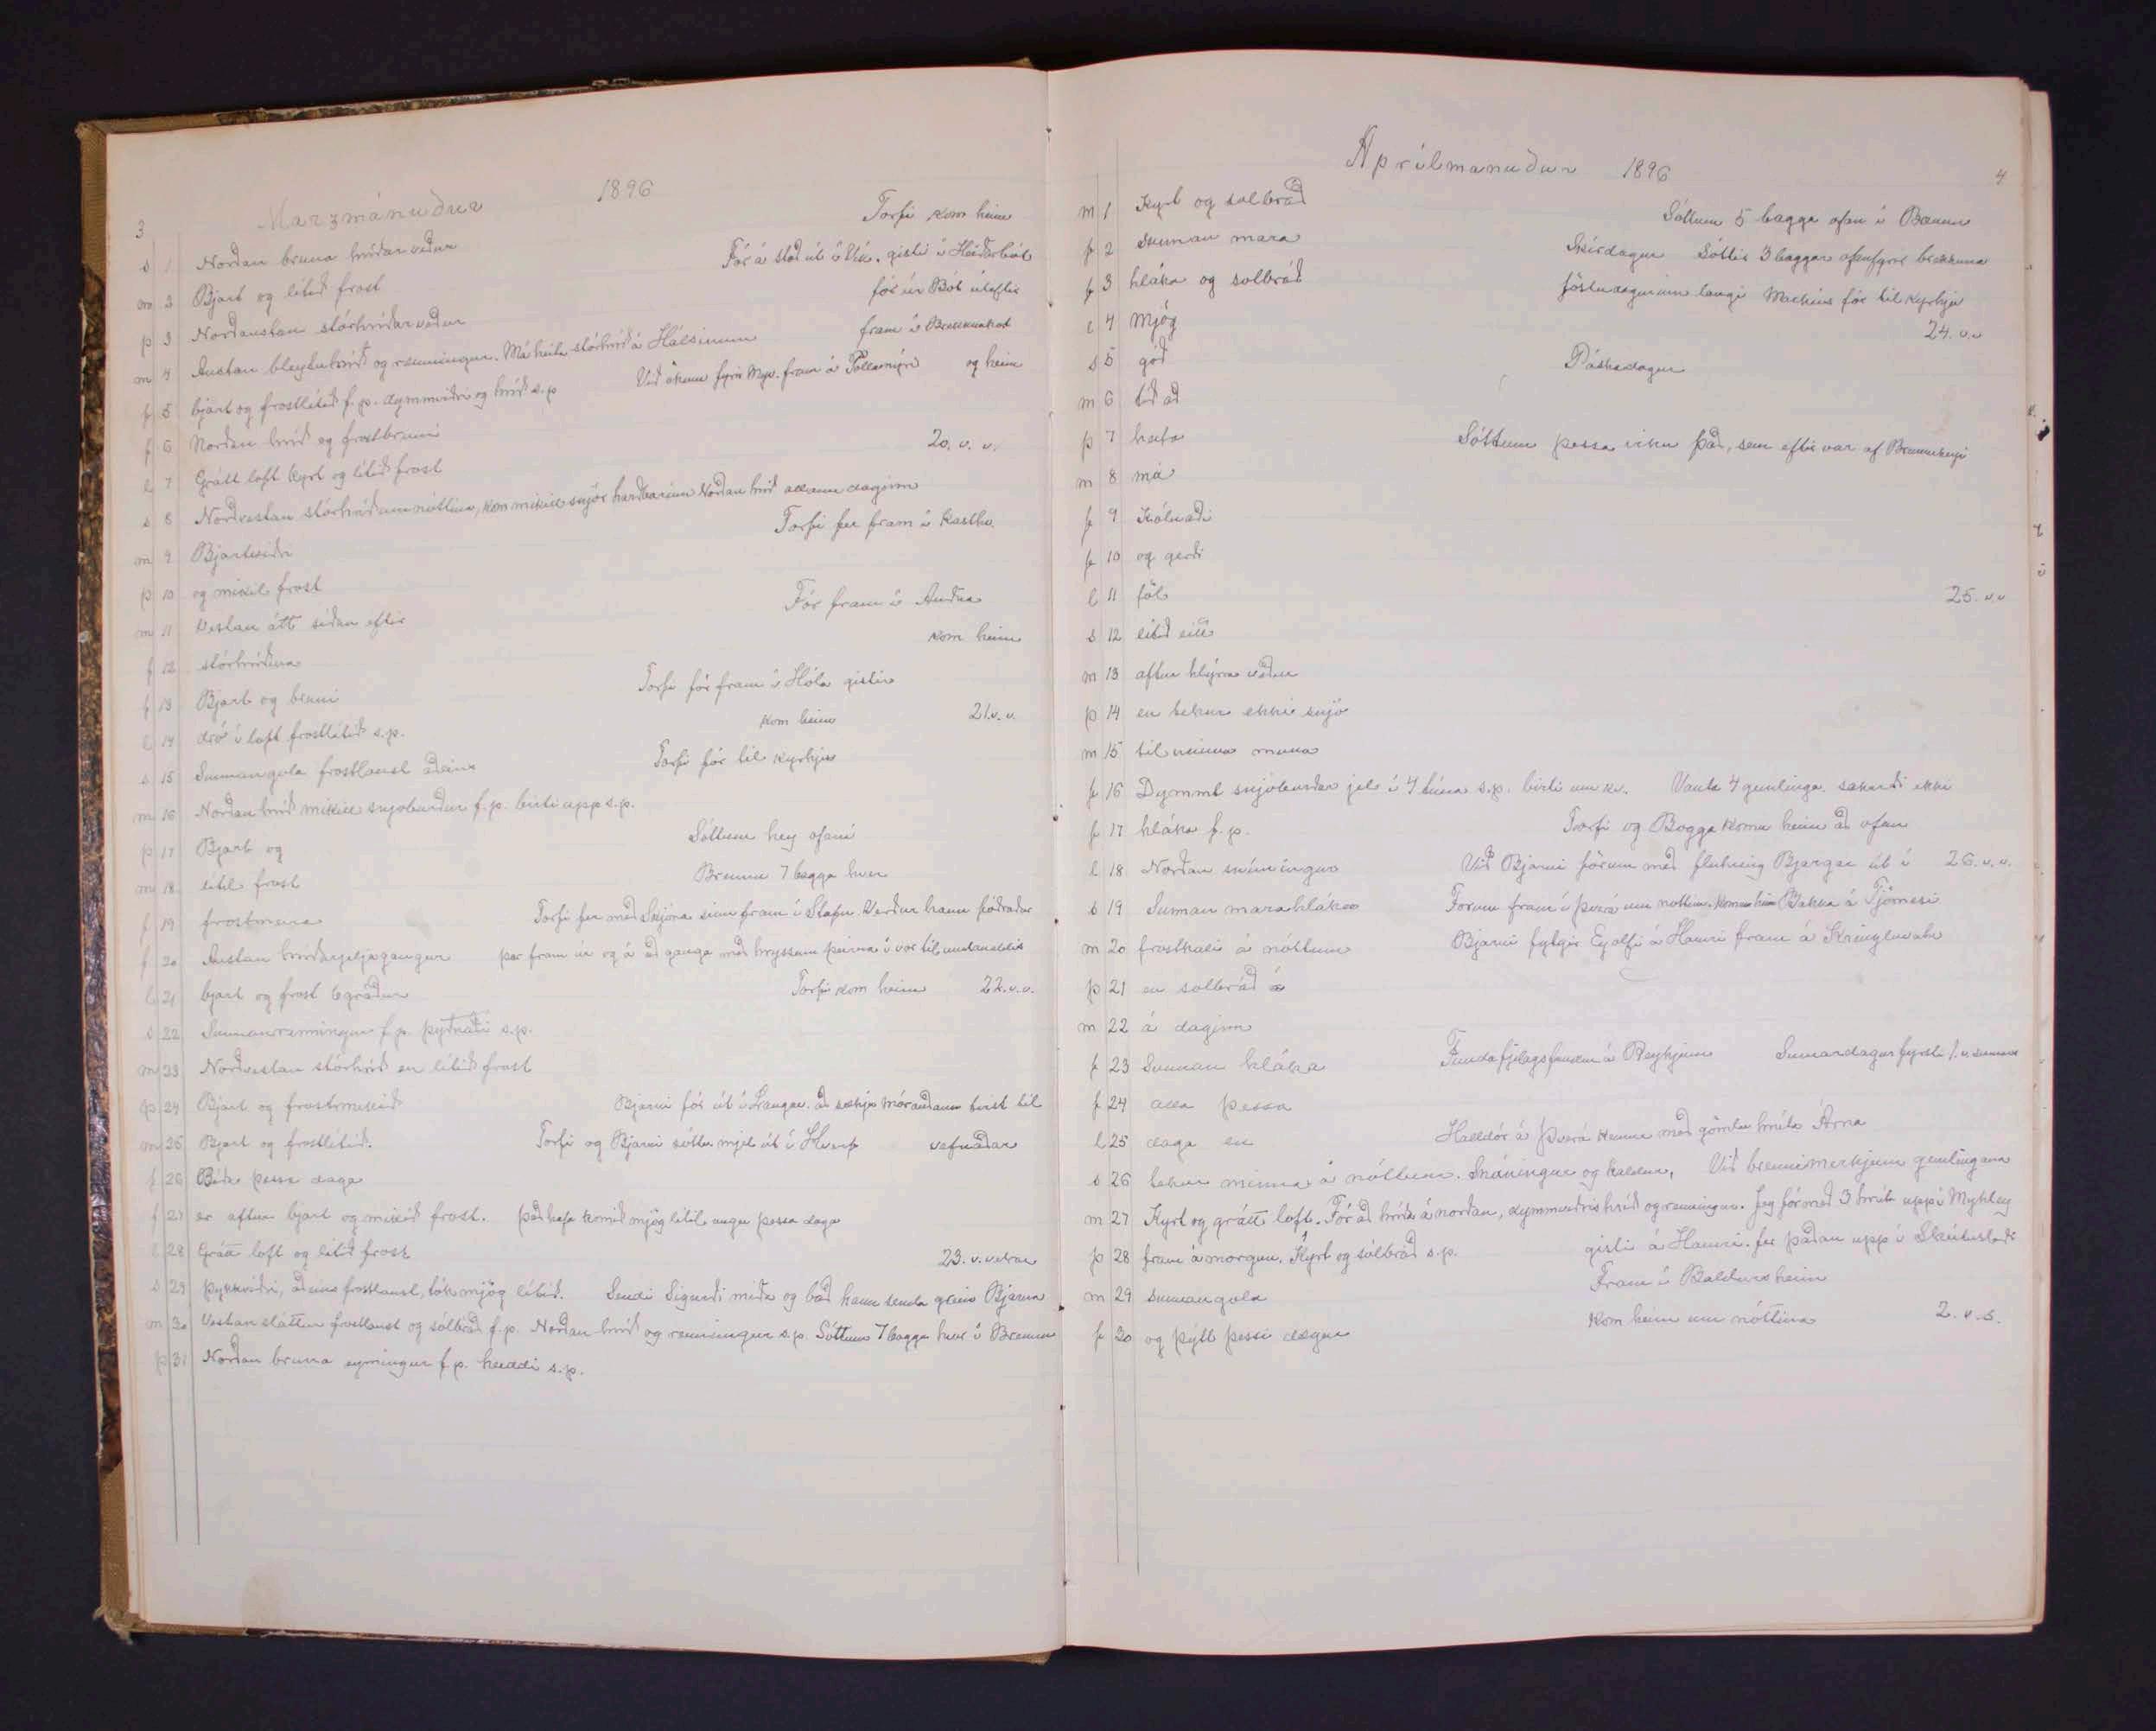 3
Marzmánuður 1896
s 1 Norðan bruna hríðarveður Torfi kom heim
m 2 Bjart og lítið frost Fór á stað út í Vík. gisti í
þ 3 Norðaustan stórhríðarveður fór úr
m 4 Austan bleytuhríð og renningur. Má heita stórhríð á Hálsinum fram í Brekknakot
f 5 bjart og frostlítið f.p. dymmviðri og hríð s.p Við ókum fyrir Mýv. fram á og heim
f 6 Norðan hríð og frostbruni
l 7 Grátt loft kyrt og lítið frost 20. v. v.
s 8 Norðvestan stórhríð um nóttina, kom mikill snjór harðbarinn Norðan hríð allann daginn
m 9 Bjartviðri Torfi fer fram í Kasthv.
þ 10 og mikil frost
m 11 Vestan átt síðan eftir Fór fram í Auðna
f 12 stórhríðina kom heim
f 13 Bjart og bruni Torfi fór fram í Hóla gistir
l 14 dró í loft frostlítið s.p. kom heim 21. v. v.
s 15 Sunnangola frostlaust aðeins Torfi fór til kyrkju
m 16 Norðan hríð mikill snjoburður f.p. birti upp s.p.
þ 17 Bjart og Sóttum hey ofaní
m 18 lítil frost Brennu 7 bagga hver
f 19 frostmara Torfi fer með Skjóna sinn fram í Stafn. Verður hann fóðraður
f 20 Austan hríðarjeljagangur þar fram úr og á að ganga með hryssum þeirra í vor til undaneldis
l 21 bjart og frost 6 gráður Torfi kom heim 22. v. v.
s 22 Sunnanrenningur f.p. þyðnaði s.p.
m 23 Norðvestan stórhríð en lítið frost
þ 24 Bjart og frostmikið Bjarni fór út í Laugar. að sækja mórauðann tvist til
m 25 Bjart og frostlítið. Torfi og Bjarni sóttu mjel út í vefnaðar
f 26 Báða þessa daga
f 27 er aftur bjart og mikið frost. það hafa komið mjög lítil augu þessa daga
l 28 Grátt loft og lítið frost 23. v. vetrar
s 29 Þykkviðri, aðeins frostlaust, tók mjög lítið. Sendi Sigurði miða og bað hann senda grein Bjarna
m 30 Vestan sláttur frostlaust og sólbráð f.p. Norðan hríð og renningur s.p. Sóttum 7 bagga hver í Brennu
þ 31 Norðan bruna f.p. s.p.
Aprílmanuður 1896 4
m 1 Kyrt og solbráð Sóttum 5 bagga ofan í Brennu
f 2 sunnan mara Skírdagur Sóttir 3 baggar ofanfyrir brekkuna
f 3 hláka og solbráð föstudagurinn langi Machíus fór til kyrkju
l 4 Mjög 24. v. v
s 5 góð Páskadagur
m 6 tíð að
þ 7 hafa Sóttum þessa viku það, sem eftir var af Brennuheyi
m 8 má
f 9 Kólnaði
f 10 og gerði
l 11 föl 25. v. v
s 12 lítið eitt
m 13 aftur hlýrra veður
þ 14 en tekur ekki snjó
m 15 til neinna muna
f 16 Dymmt snjóburðar jel í 4 tíma s.p. birti um kv. Vanta 4 gemlinga. sakaði ekki
f 17 hláka f.p. Torfi og Bogga komu heim að ofan
l 18 Norðan snúningur Við Bjarni förum með flutning Bjargar út í 26. v. v.
s 19 Sunnan mara hláka Forum fram í þverá um nottina. komum heim Bakka á Tjörnesi
m 20 frostkali á nóttum Bjarni fylgir Eyolfi á Hamri fram á Kringluvatn
þ 21 en sólbráð á
m 22 á daginn
f 23 Sunnan hláka Fundafjelagsfundur á Reykjum Sumardagur fyrsti 1. v. sumars
f 24 alla þessa
l 25 daga en Halldór á Þverá kemur með gömlu hrúta Árna
s 26 tekur minna á nóttum. Snúningur og kaldur, Við brennimerkjum gemlingana
m 27 Kyrt og grátt loft. Fór að hríða á norðan, dymmviðris hríð og renningur. Jeg fór með 3 hrúta upp í Myhley
þ 28 fram á morgun. Kyrt og sólbráð s.p. gisti á Hamri. fer þaðan upp í Skútustaði
m 29 sunnangola Fram í Baldursheim
f 30 og þýtt þessi dægur kom heim um nóttina 2. v. s.